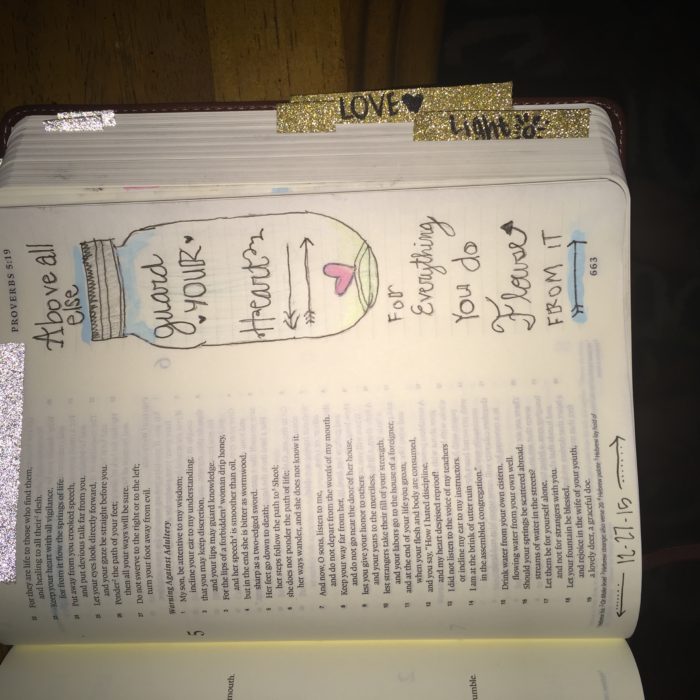 LOVE♥
Light
PROVERBS 5:19
22 For they are life to those who find them,
and healing to all their flesh.
23 Keep your heart with all vigilance,
for from it flow the springs of life.
24 Put away from you crooked speech,
and put devious talk far from you.
25 Let your eyes look directly forward,
and your gaze be straight before you.
26 Ponder the path of your feet;
then all your ways will be sure.
27 Do not swerve to the right or to the left;
turn your foot away from evil.
Warning Against Adultery
5 My son, be attentive to my wisdom;
incline your ear to my understanding,
2 that you may keep discretion,
and your lips may guard knowledge.
3 For the lips of a forbidden woman drip honey,
and her speech is smoother than oil,
4 but in the end she is bitter as wormwood,
sharp as a two-edged sword.
5 Her feet go down to death;
her steps follow the path to Sheol;
6 she does not ponder the path of life;
her ways wander, and she does not know it.
7 And now, O sons, listen to me,
and do not depart from the words of my mouth.
8 Keep your way far from her,
and do not go near the door of her house,
9 lest you give your honor to others
and your years to the merciless,
10 lest strangers take their fill of your strength,
and your labors go to the house of a foreigner,
11 and at the end of your life you groan,
when your flesh and body are consumed,
12 and you say, "How I hated discipline,
and my heart despised reproof!
13 I did not listen to the voice of my teachers
or incline my ear to my instructors.
14 I am at the brink of utter ruin
in the assembled congregation."
15 Drink water from your own cistern,
flowing water from your own well.
16 Should your springs be scattered abroad,
streams of water in the streets?
17 Let them be for yourself alone,
and not for strangers with you.
18 Let your fountain be blessed,
and rejoice in the wife of your youth,
19 a lovely deer, a graceful doe.
Above all
else
guard
♥YOUR♥
Heart
For
Everything
You do
Flows
FROM IT
663
12-27-15
mouth,
umble.